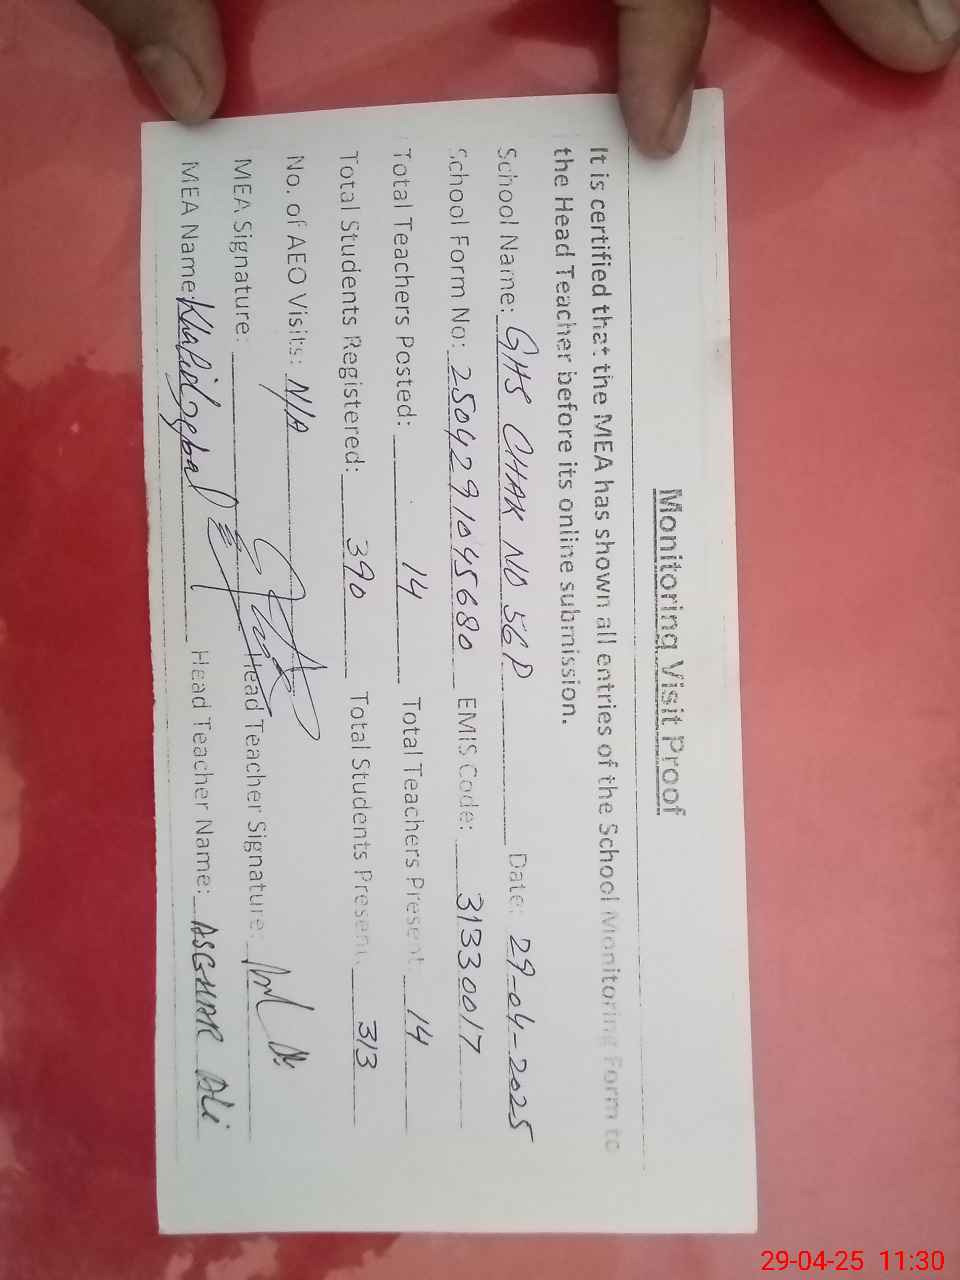 Monitoring Visit Proof
It is certified that the MEA has shown all entries of the School Monitoring Form to
the Head Teacher before its online submission.
School Name: GHS CHAK NO 56P Date: 29-04-2025
School Form No: 250429 1045680 EMIS Code: 31330017
Total Teachers Posted: 14 Total Teachers Present: 14
Total Students Registered: 390 Total Students Present: 313
No. of AEO Visits: N/A
MEA Signature: Head Teacher Signature:
MEA Name: Khalid Iqbal Head Teacher Name: ASGHAR Ali
29-04-25 11:30